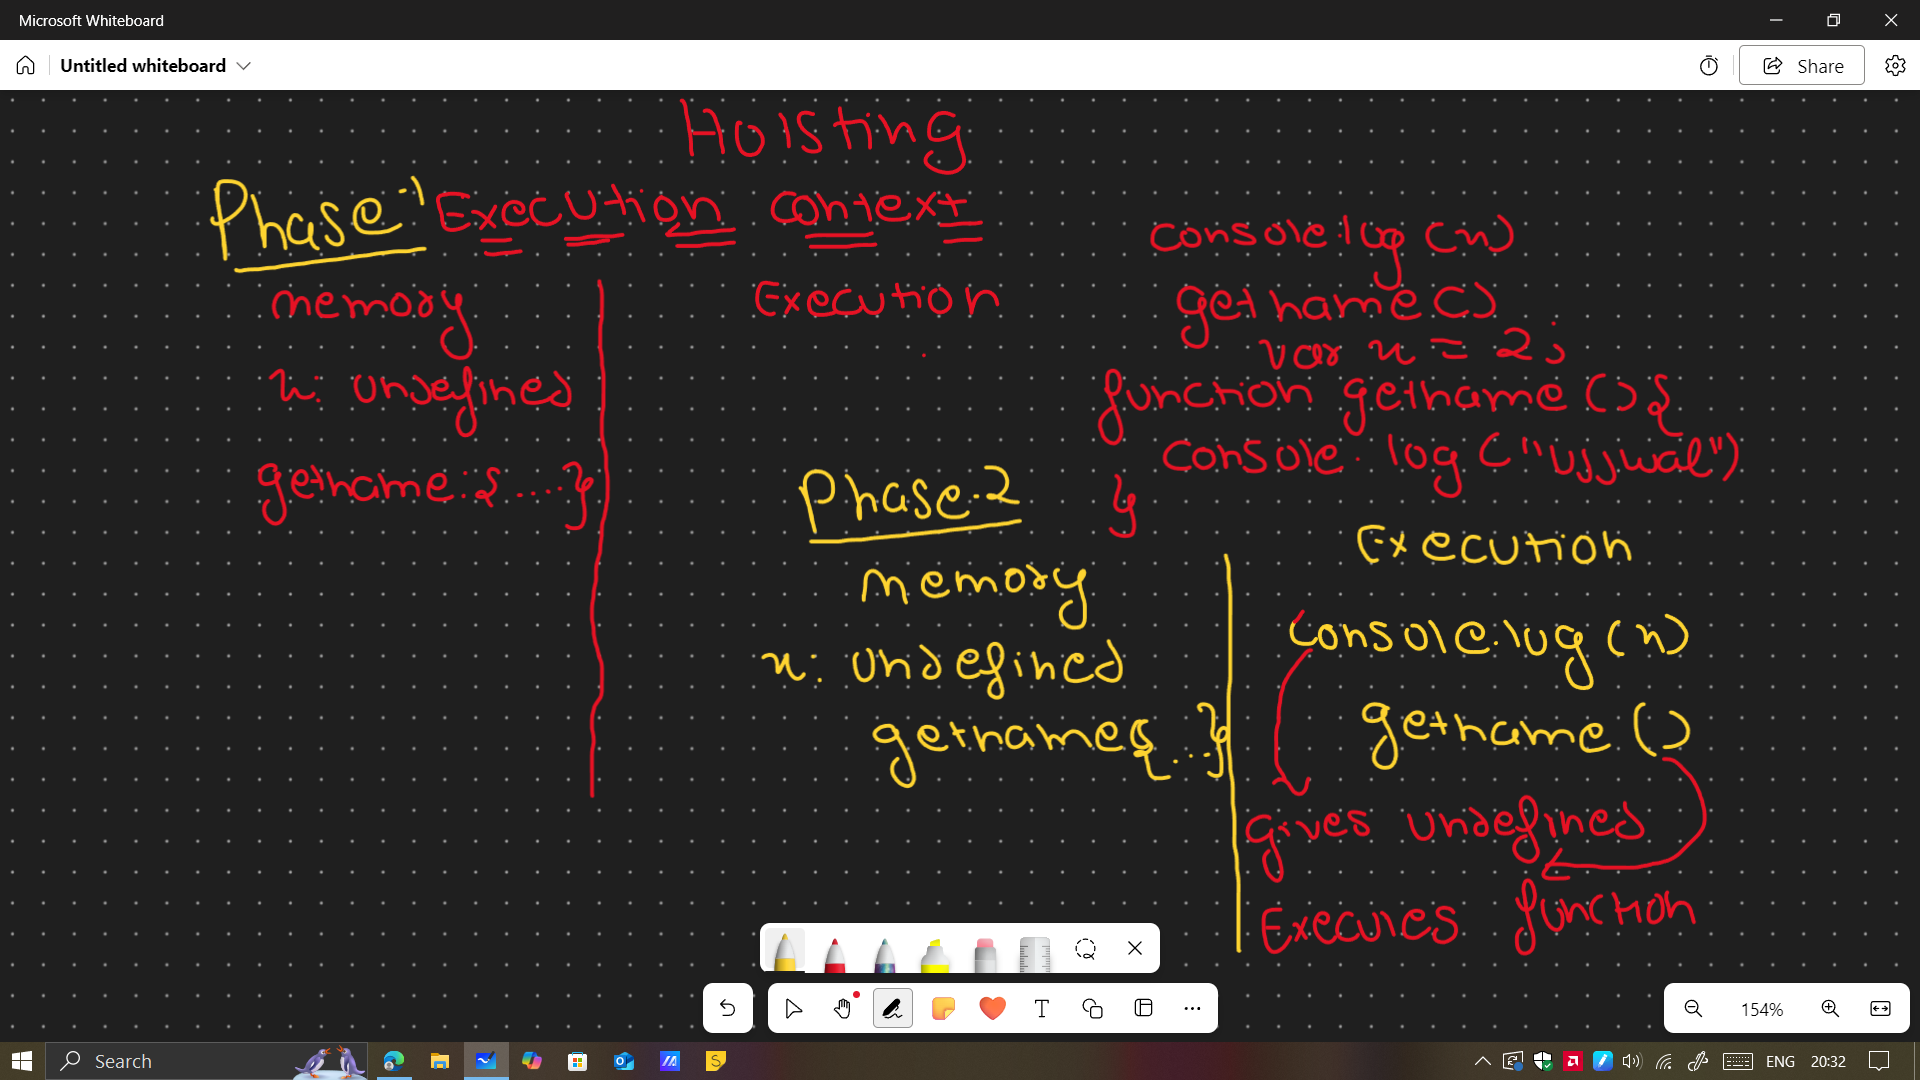 Microsoft Whiteboard
Untitled whiteboard
Share
Hoisting
Phase-1 Execution context
memory
Execution
x: undefined
getname: {....}
console.log(x)
getname()
var x = 2;
function getname(){
console.log("Ujjwal")
}
Phase-2
memory
Execution
x: undefined
getname{...}
console.log(x)
getname()
gives undefined
Executes function
154%
Search
ENG
20:32